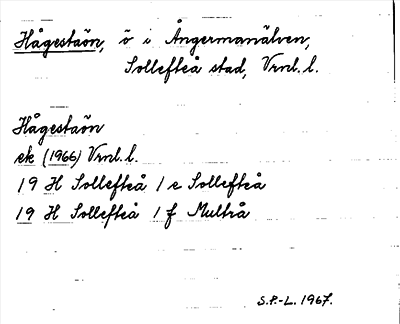 Hågestaön, ö i Ångermanälven,
Sollefteå stad, Vrnl.l.
Hågestaön
ek (1966) Vrnl.l.
19 H Sollefteå 1 e Sollefteå
19 H Sollefteå 1 f Multrå
S.P.-L. 1967.